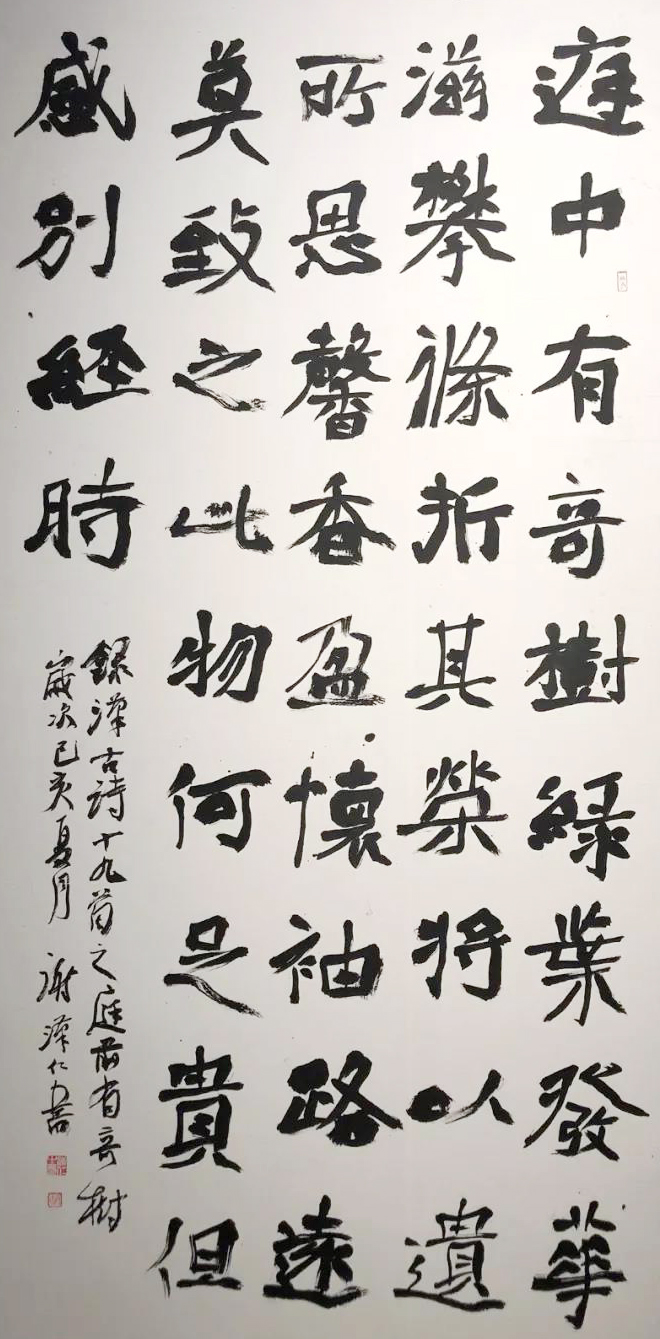 庭中有竒樹緑葉發華
滋攀條折其榮將以遺
所思馨香盈懷袖路遠
莫致之此物何足貴但
感別經時
録漢古詩十九首之庭前有竒樹
歲次己亥夏月 謝仁書